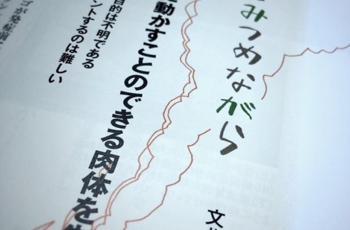 みつめながら
文
動かすことのできる肉体を
目的は不明である
ントするのは難しい
ゴが発